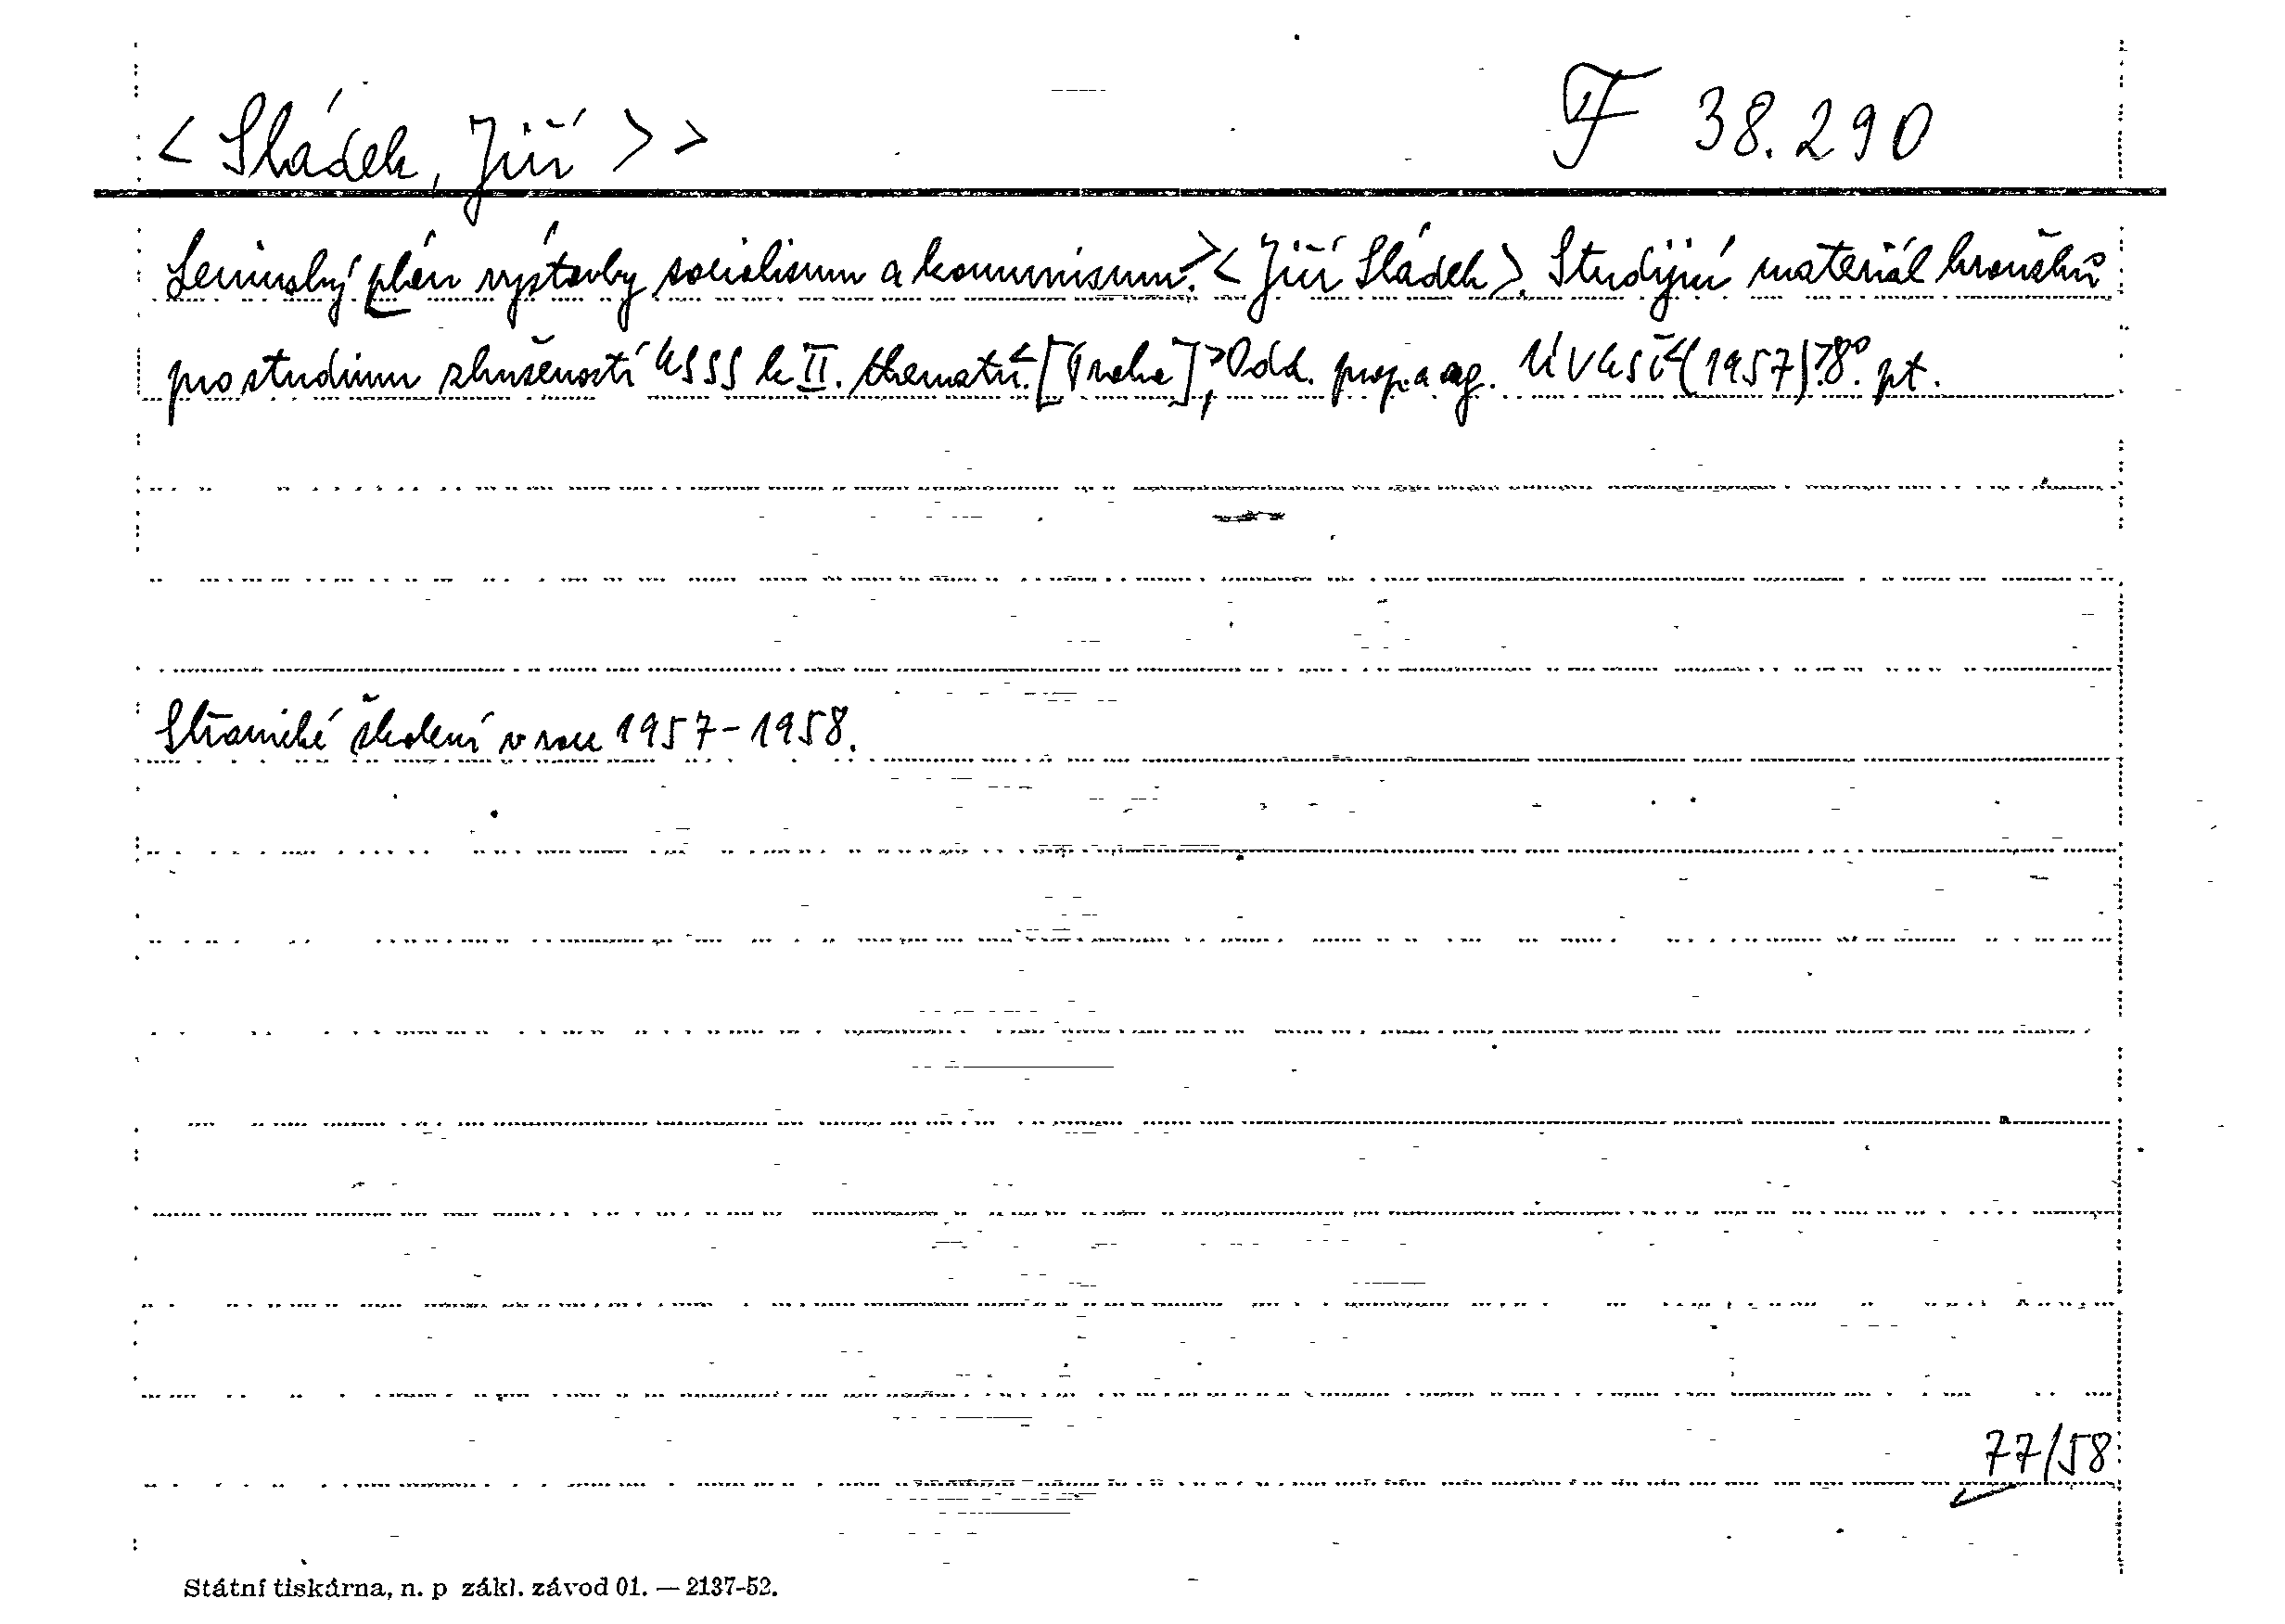 < Sládek, Jiří > >
F 38.290
Leninský plán výstavby socialismu a komunismu. > < Jiří Sládek >. Studijní materiál kroužků
pro studium zkušeností KSSS k II. thematu. < [Praha], > Odd. prop. a ag. ÚV KSČ < (1957). > 8°. pt.
Stranické školení v roce 1957-1958.
77/58
Státní tiskárna, n. p zákl. závod 01. — 2137-52.